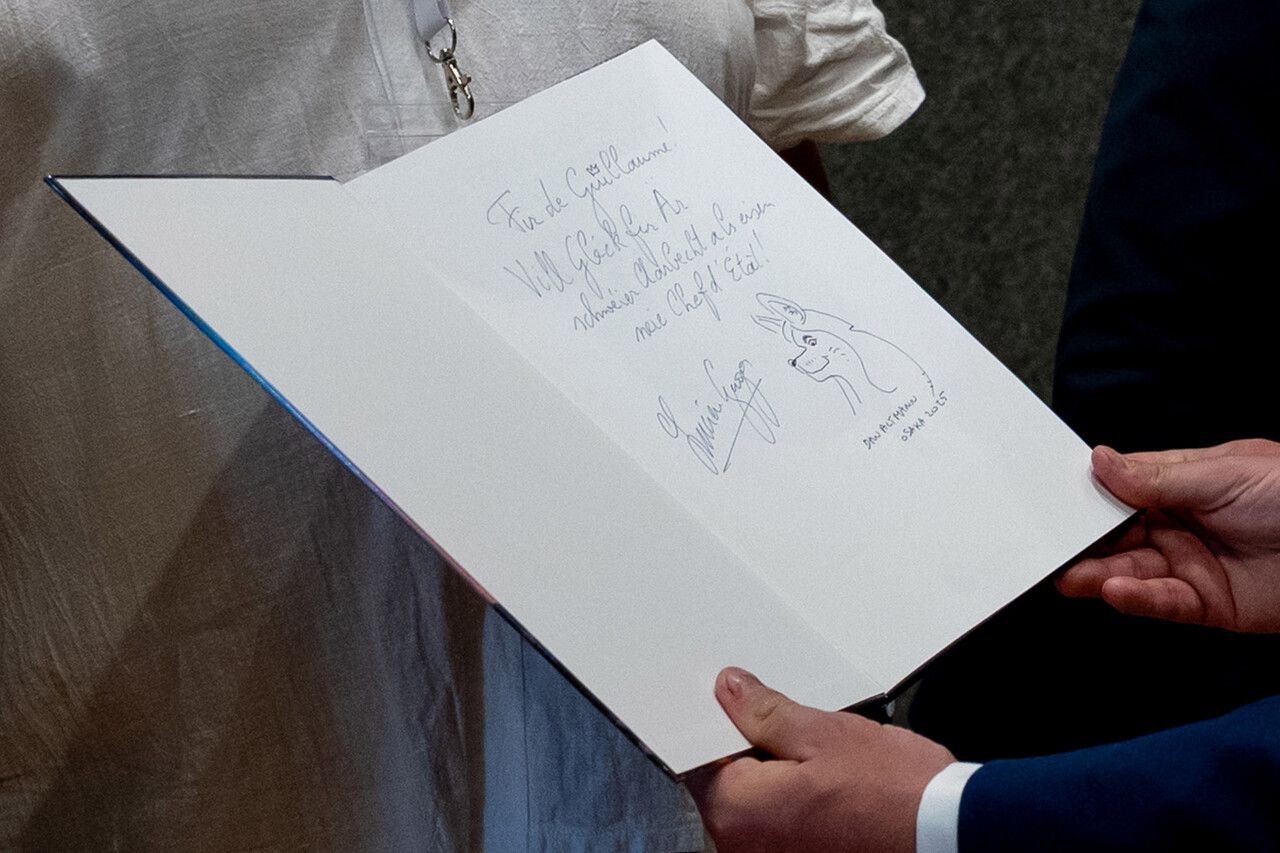 Fir de Guillaume!
Vill Gléck fir Är
schwéier Aarbecht als eisen
neie Chef d'État!
DAN ALTMANN
OSAKA 2025